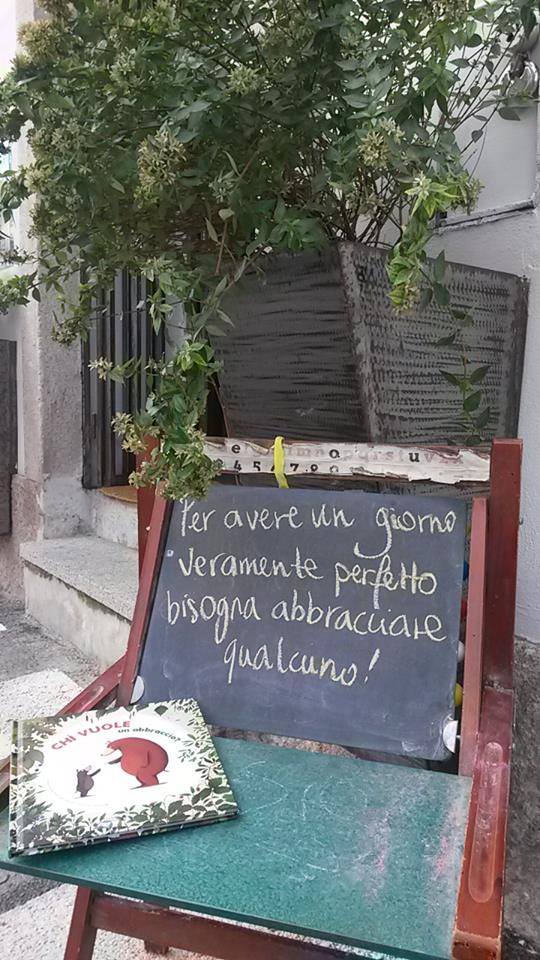 Per avere un giorno
veramente perfetto
bisogna abbracciare
qualcuno!
CHI VUOLE
un abbraccio?